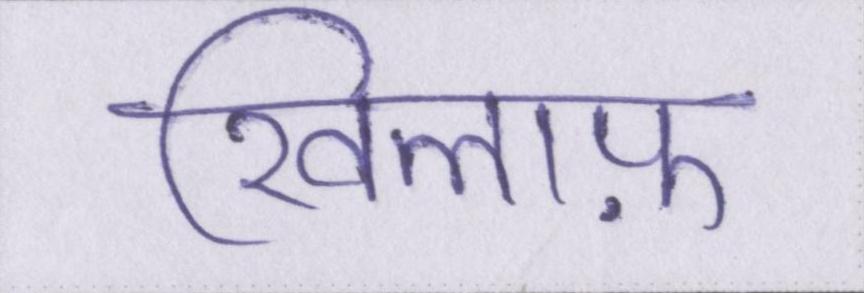 खिलाफ़